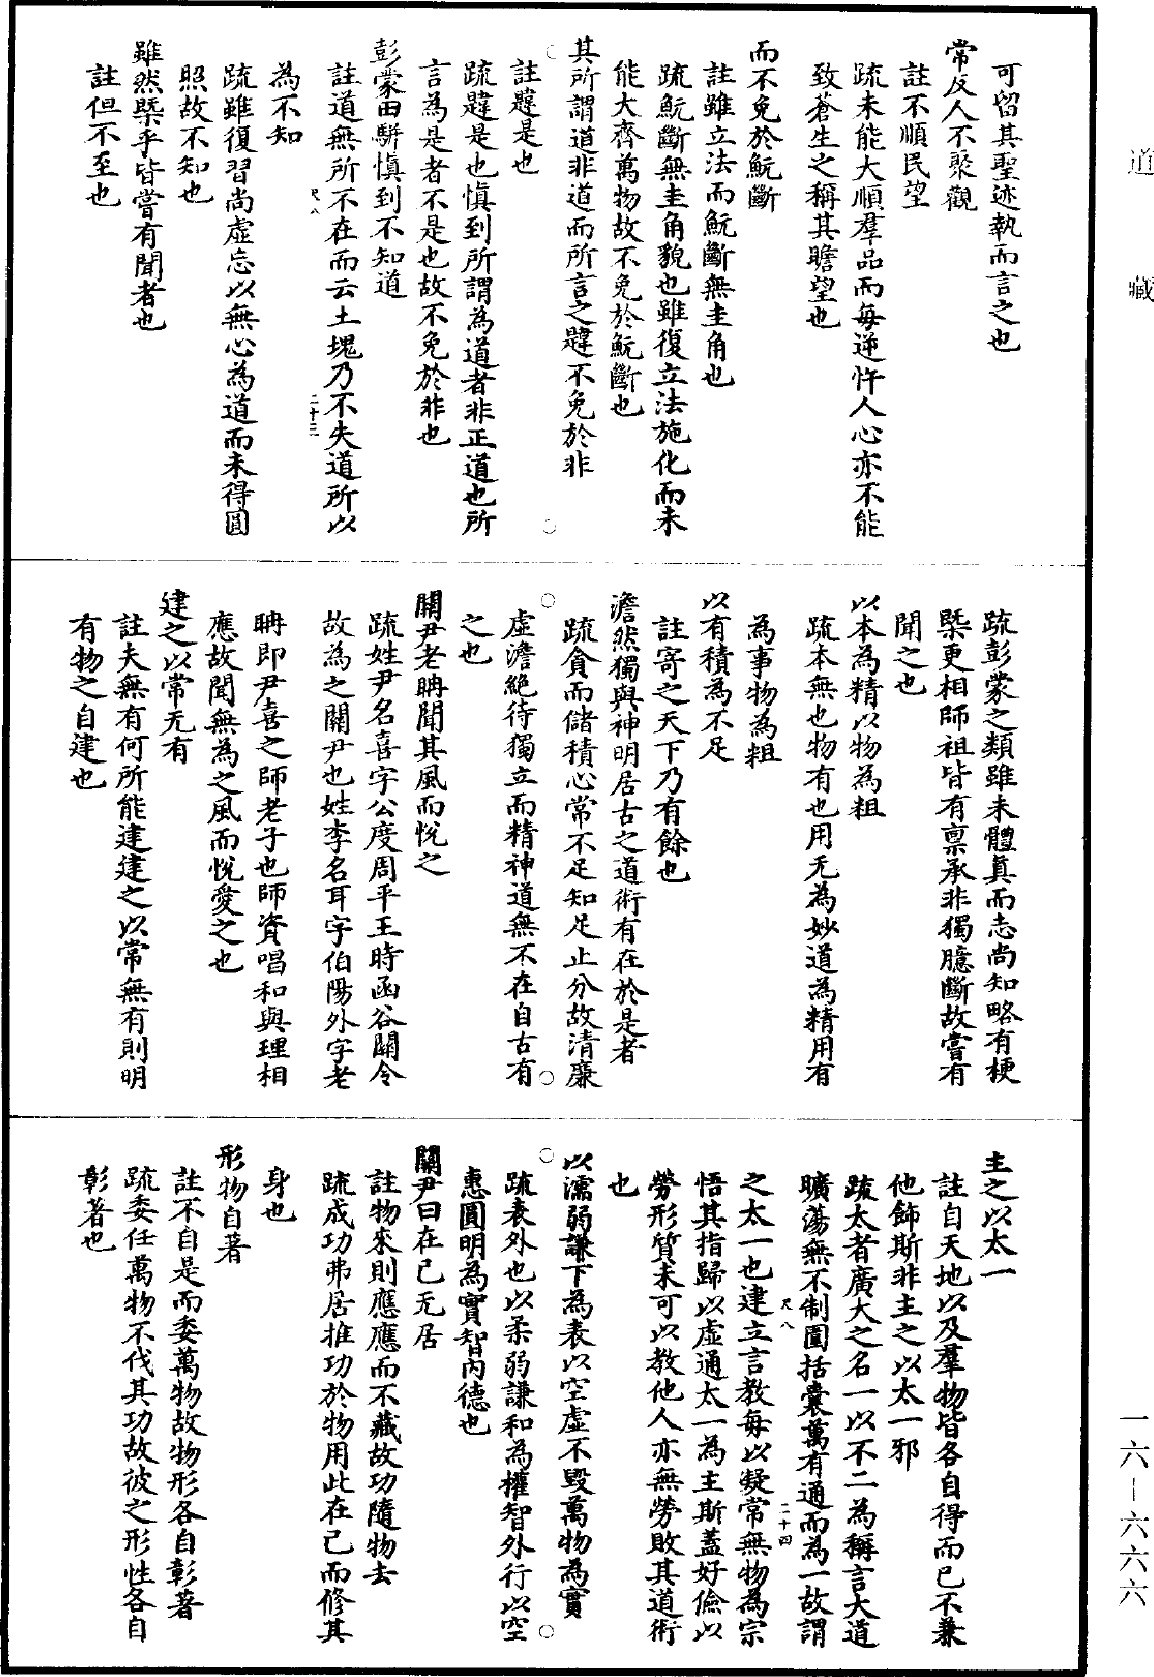 道藏
可留其聖迹執而言之也
常反人不聚觀
註不順民望
疏未能大順羣品而每逆忤人心亦不能
致蒼生之稱其瞻望也
而不免於魭斷
註雖立法而魭斷無圭角也
疏魭斷無圭角貌也雖復立法施化而未
能大齊萬物故不免於魭斷也
其所謂道非道而所言之韙不免於非
註韙是也
疏韙是也慎到所謂為道者非正道也所
言為是者不是也故不免於非也
彭蒙田駢慎到不知道
註道無所不在而云土塊乃不失道所以
尺八 二十三
為不知
疏雖復習尚虛忘以無心為道而未得圓
照故不知也
雖然槩乎皆嘗有聞者也
註但不至也
疏彭蒙之類雖未體真而志尚知略有梗
槩更相師祖皆有稟承非獨臆斷故嘗有
聞之也
以本為精以物為粗
疏本無也物有也用无為妙道為精用有
為事物為粗
以有積為不足
註寄之天下乃有餘也
澹然獨與神明居古之道術有在於是者
疏貪而儲積心常不足知足止分故清廉
虛澹絶待獨立而精神道無不在自古有
之也
關尹老聃聞其風而悅之
疏姓尹名喜字公度周平王時函谷關令
故為之關尹也姓李名耳字伯陽外字老
聃即尹喜之師老子也師資唱和與理相
應故聞無為之風而悅愛之也
建之以常无有
註夫無有何所能建建之以常無有則明
有物之自建也
主之以太一
註自天地以及羣物皆各自得而已不兼
他飾斯非主之以太一邪
疏太者廣大之名一以不二為稱言大道
曠蕩無不制圍括囊萬有通而為一故謂
尺八 二十四
之太一也建立言教每以凝常無物為宗
悟其指歸以虛通太一為主斯蓋好儉以
勞形質未可以教他人亦無勞敗其道術
也
以濡弱謙下為表以空虛不毀萬物為實
疏表外也以柔弱謙和為權智外行以空
惠圓明為實智內德也
關尹曰在己无居
註物來則應應而不藏故功隨物去
疏成功弗居推功於物用此在己而修其
身也
形物自著
註不自是而委萬物故物形各自彰著
疏委任萬物不伐其功故彼之形性各自
彰著也
一六—六六六